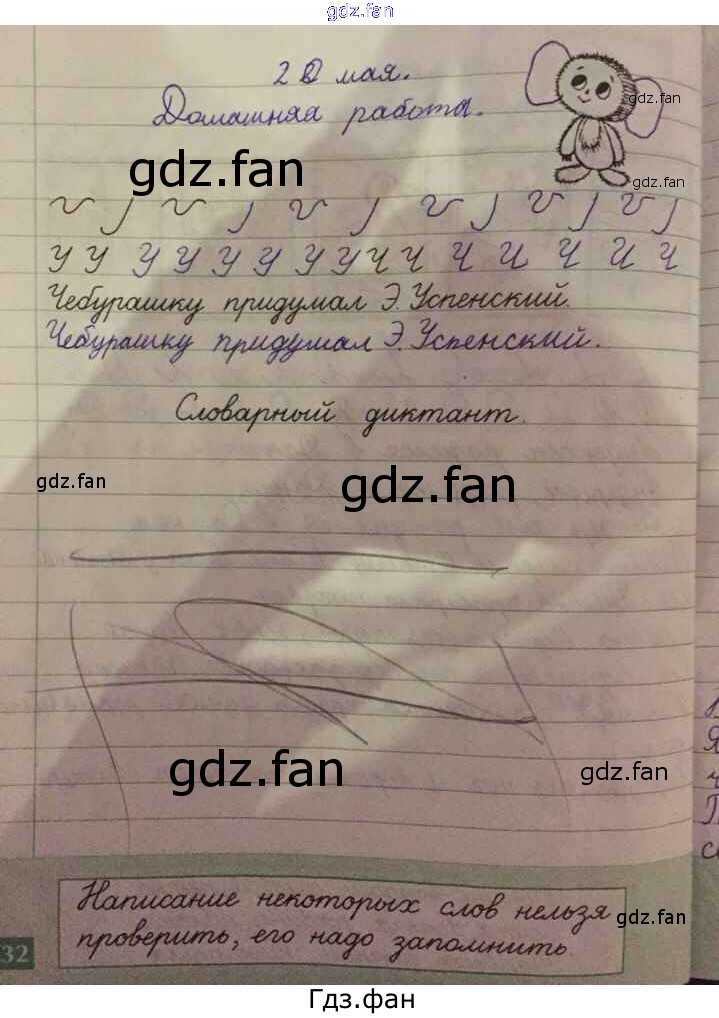 gdz.fan
20 мая.
Домашняя работа.
gdz.fan
gdz.fan
gdz.fan
У У У У У У У У Ч Ч Ч И Ч И Ч
Чебурашку придумал Э. Успенский.
Чебурашку придумал Э. Успенский.
Словарный диктант.
gdz.fan
gdz.fan
gdz.fan
gdz.fan
Написание некоторых слов нельзя
gdz.fan
проверить, его надо запомнить
32
Гдз.фан